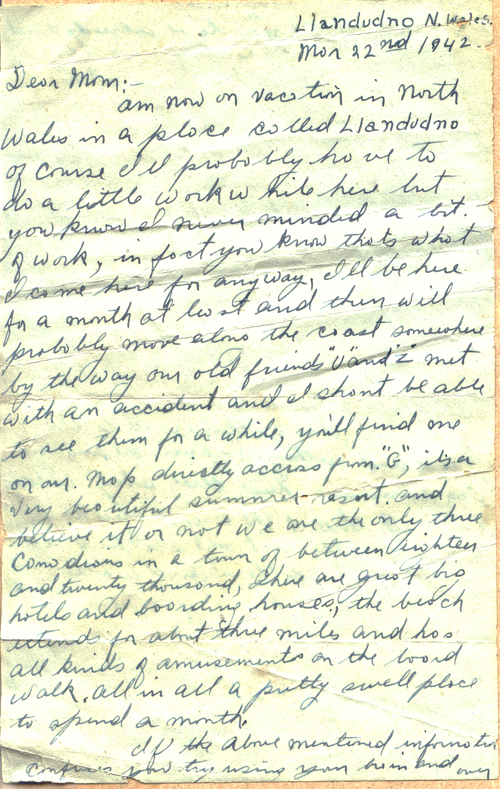 Llandudno N. Wales.
Mar 22nd 1942.
Dear Mom:-
am now on vacation in North
Wales in a place called Llandudno
of course I'll probably have to
do a little work while here but
you know I never minded a bit
of work, in fact you know thats what
I come here for anyway, I'll be here
for a month at least and then will
probably move along the coast somewhere
by the way our old friends "V" and "Z" met
with an accident and I shant be able
to see them for a while, you'll find me
on our map directly accross from "G", its a
very beautiful summer resort. and
believe it or not we are the only three
Canadians in a town of between eighteen
and twenty thousand, there are great big
hotels and boarding houses, the beach
extends for about three miles and has
all kinds of amusements on the board
walk. all in all a pretty swell place
to spend a month.
If the above mentioned information
confuses you try using your and over